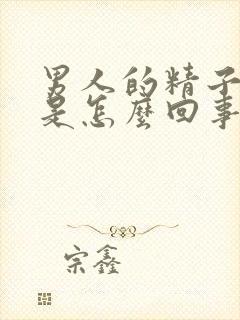 男人的精子
是怎麼回事
宗鑫